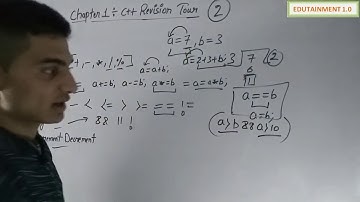 EDUTAINMENT 1.0
Chapter 1 ÷ C++ Revision Tour 2
a=7, b=3
+,-,*,/,% a=a+b; a=2+3+b*3 7 2
a+=b; a-=b; a*=b = a=a*b; 6
< <= > >= == != a==b
&& || ! a=b;
Increment-Decrement a>b && a>10